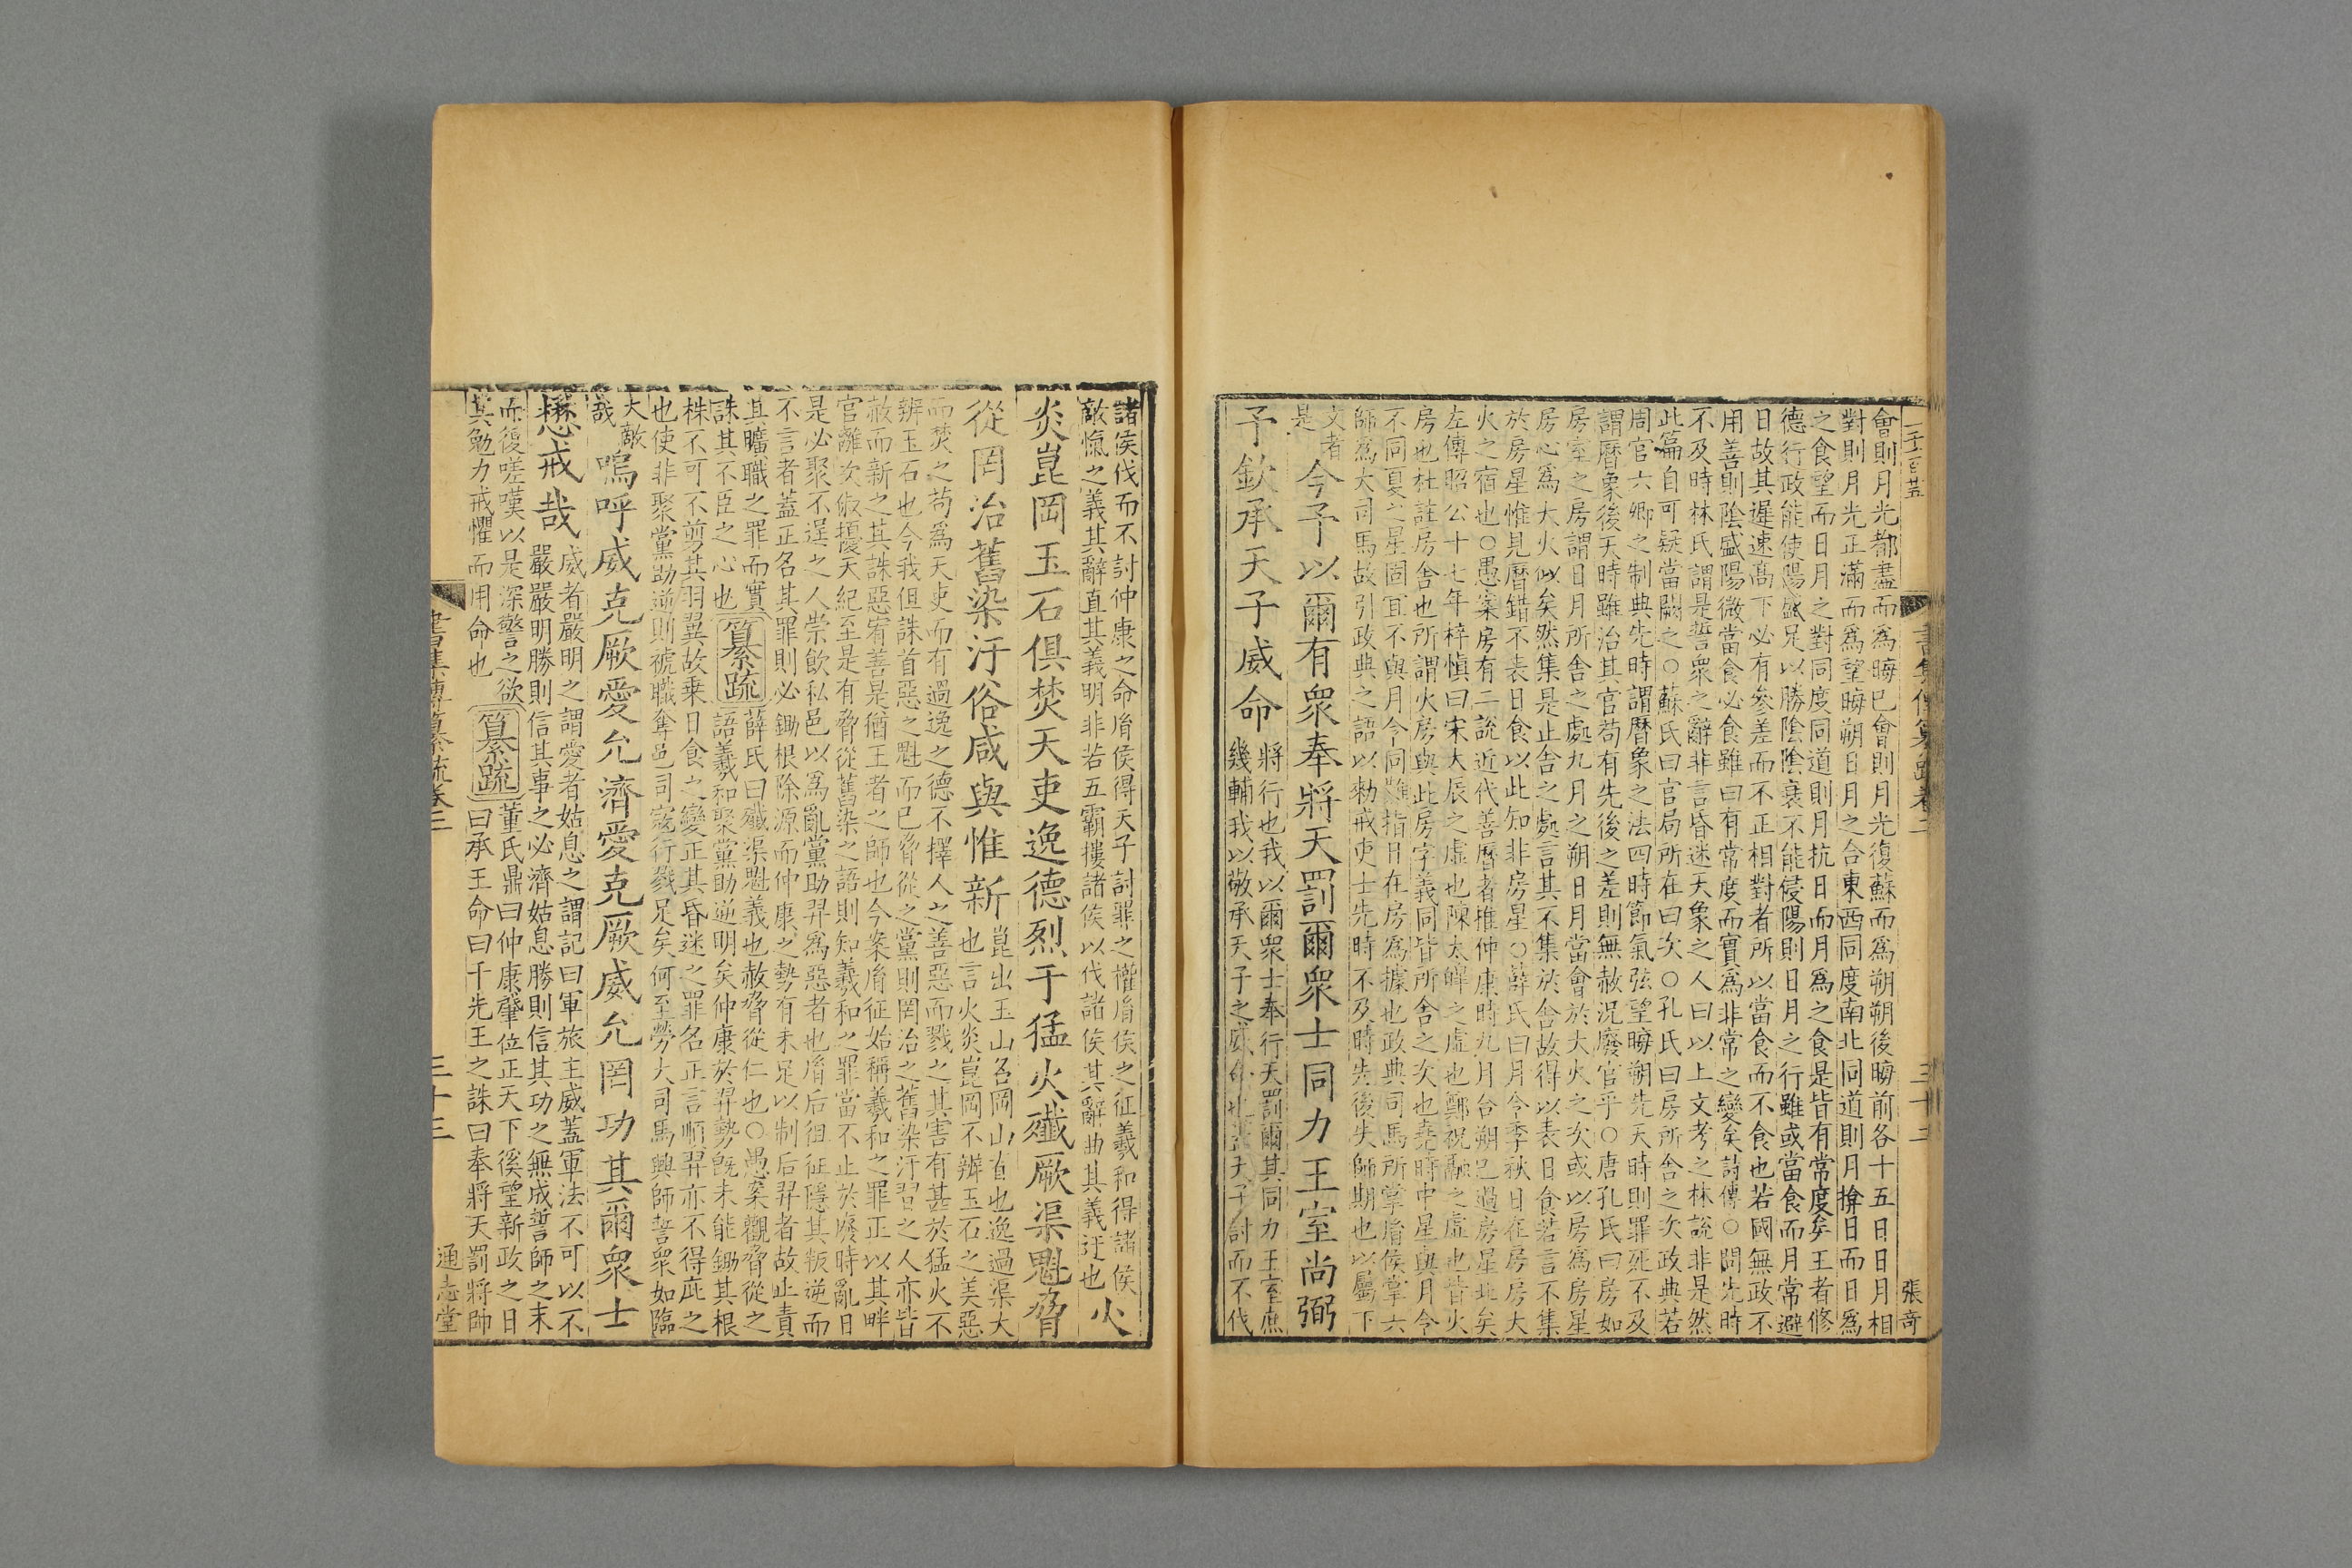 會則月光都盡而爲晦已會則月光復蘇而爲朔朔後晦前各十五日日月相
對則月光正滿而爲望晦朔日月之合東西同度南北同道則月揜日而日爲
之食望而日月之對同度同道則月抗日而月爲之食是皆有常度矣王者修
德行政能使陽盛足以勝陰陰衰不能侵陽則日月之行雖或當食而月常避
日故其遲速高下必有參差而不正相對者所以當食而不食也若國無政不
用善則陰盛陽微當食必食雖曰有常度而實爲非常之變矣詩傳○問先時
不及時林氏謂是誓衆之辭非言昏迷天象之人曰以上文考之林說非是然
此篇自可疑當闕之○蘇氏曰官局所在曰次○孔氏曰房所舍之次政典若
周官六卿之制典先時謂曆象之法四時節氣弦望晦朔先天時則罪死不及
謂曆象後天時雖治其官苟有先後之差則無赦況廢官乎○唐孔氏曰房如
房室之房謂日月所舍之處九月之朔日月當會於大火之次或以房爲房星
房心爲大火似矣然集是止舍之處言其不集於舍故得以表日食若言不集
於房星惟見曆錯不表日食以此知非房星○薛氏曰月令季秋日在房房大
火之宿也○愚案房有二說近代善曆者推仲康時九月合朔已過房星北矣
左傳昭公十七年梓愼曰宋大辰之虛也陳太皥之虛也鄭祝融之虛也皆火
房也杜註房舍也所謂火房與此房字義同皆所舍之次也堯時中星與月令
不同夏之星固宜不與月令同難指日在房爲據也政典司馬所掌胤侯掌六
師爲大司馬故引政典之語以勑戒吏士先時不及時先後失師期也以屬下
文者
是
今予以爾有衆奉將天罰爾衆士同力王室尚弼
予欽承天子威命
將行也我以爾衆士奉行天罰爾其同力王室庶
幾輔我以敬承天子之威命也蓋天子討而不伐
書集傳纂疏卷二
三十二
張奇
諸侯伐而不討仲康之命胤侯得天子討罪之權胤侯之征羲和得諸侯
敵愾之義其辭直其義明非若五霸摟諸侯以伐諸侯其辭曲其義迂也
火
炎崑岡玉石俱焚天吏逸德烈于猛火殲厥渠魁脅
從罔治舊染汙俗咸與惟新
崑出玉山名岡山脊也逸過渠大
也言火炎崑岡不辨玉石之美惡
而焚之苟爲天吏而有過逸之德不擇人之善惡而戮之其害有甚於猛火不
辨玉石也今我但誅首惡之魁而已脅從之黨則罔治之舊染汙習之人亦皆
赦而新之其誅惡宥善是猶王者之師也今案胤征始稱羲和之罪正以其畔
官離次俶擾天紀至是有脅從舊染之語則知羲和之罪當不止於廢時亂日
是必聚不逞之人崇飮私邑以爲亂黨助羿爲惡者也胤后徂征隱其叛逆而
不言者蓋正名其罪則必鋤根除源而仲康之勢有未足以制后羿者故止責
其曠職之罪而實
誅其不臣之心也
纂疏
薛氏曰殲渠魁義也赦脅從仁也○愚案觀脅從之
語羲和聚黨助逆明矣仲康於羿勢旣未能鋤其根
株不可不剪其羽翼故乗日食之變正其昏迷之罪名正言順羿亦不得庇之
也使非聚黨助逆則褫職奪邑司寇行戮足矣何至勞大司馬興師誓衆如臨
大敵
哉
嗚呼威克厥愛允濟愛克厥威允罔功其爾衆士
懋戒哉
威者嚴明之謂愛者姑息之謂記曰軍旅主威蓋軍法不可以不
嚴嚴明勝則信其事之必濟姑息勝則信其功之無成誓師之末
而復嗟嘆以是深警之欲
其勉力戒懼而用命也
纂疏
董氏鼎曰仲康肇位正天下徯望新政之日
曰承王命曰干先王之誅曰奉將天罰將帥
書集傳纂疏卷二
三十三
通志堂